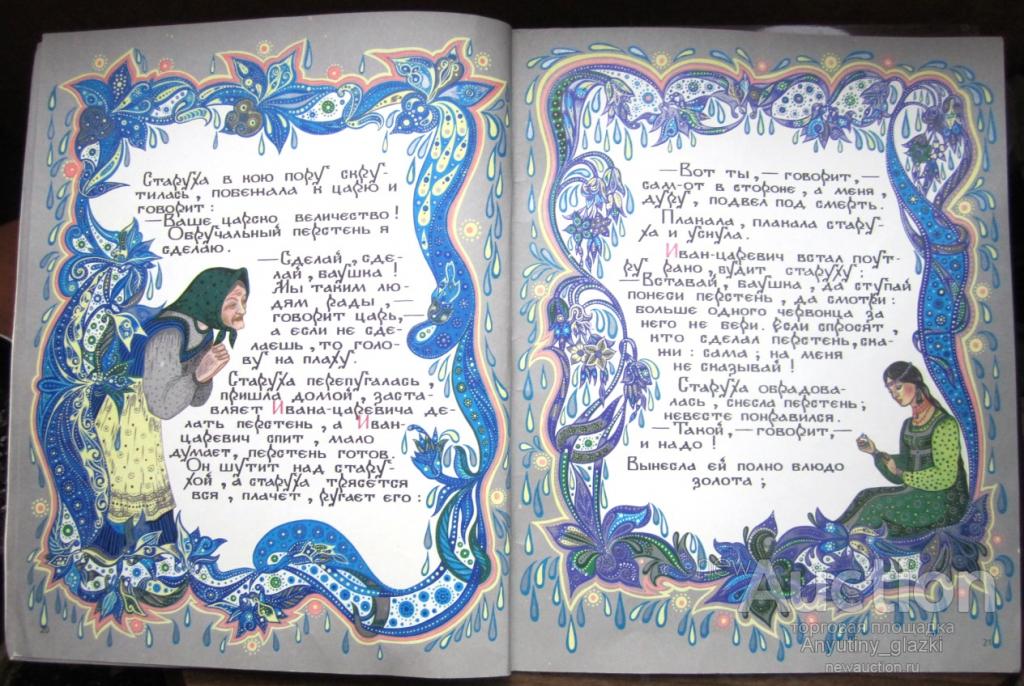 Старуха в кою пору скру-
тилась, побежала к царю и
говорит:
—Ваше царско величество!
Обручальный перстень я
сделаю.
—Сделай, сде-
лай, баушка!
Мы таким лю-
дям рады, —
говорит царь,—
а если не сде-
лаешь, то голо-
ву на плаху.
Старуха перепугалась,
пришла домой, застав-
вляет Ивана-царевича де-
лать перстень, а Иван-
царевич спит, мало
думает, перстень готов.
Он шутит над стару-
хой, а старуха трясется
вся, плачет, ругает его:
20
—Вот ты,—говорит,—
сам-от в стороне, а меня,
дуру, подвел под смерть.
Плакала, плакала стару-
ха и уснула.
Иван-царевич встал поут-
ру рано, будит старуху:
—Вставай, баушка, да ступай
понеси перстень, да смотри:
больше одного червонца за
него не бери. Если спросят,
кто сделал перстень, ска-
жи: сама; на меня
не сказывай!
Старуха обрадова-
лась, снесла перстень;
невесте понравился.
—Такой,—говорит,—
и надо!
Вынесла ей полно блюдо
золота;
21
Auction
торговая площадка
Anyutiny_glazki
newauction.ru